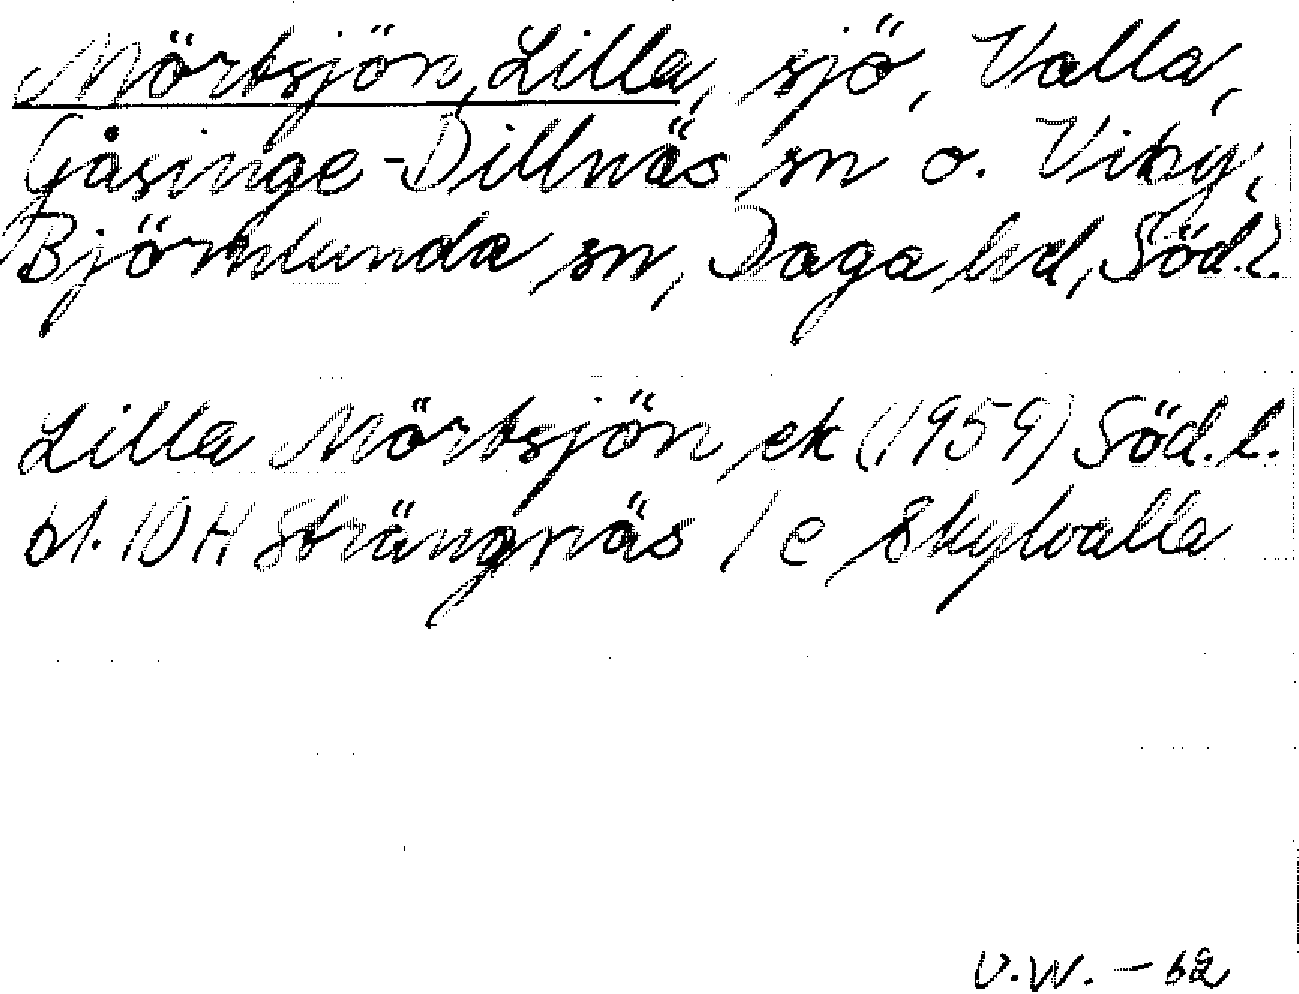 Mörtsjön, Lilla, sjö, Valla,
Gåsinge-Dillnäs sn o. Viby,
Björnlunda sn, Daga hd, Söd.l.
Lilla Mörtsjön ek (1959) Söd.l.
bl. 10H Strängnäs 1 e Skylvalla
V.W. - 62